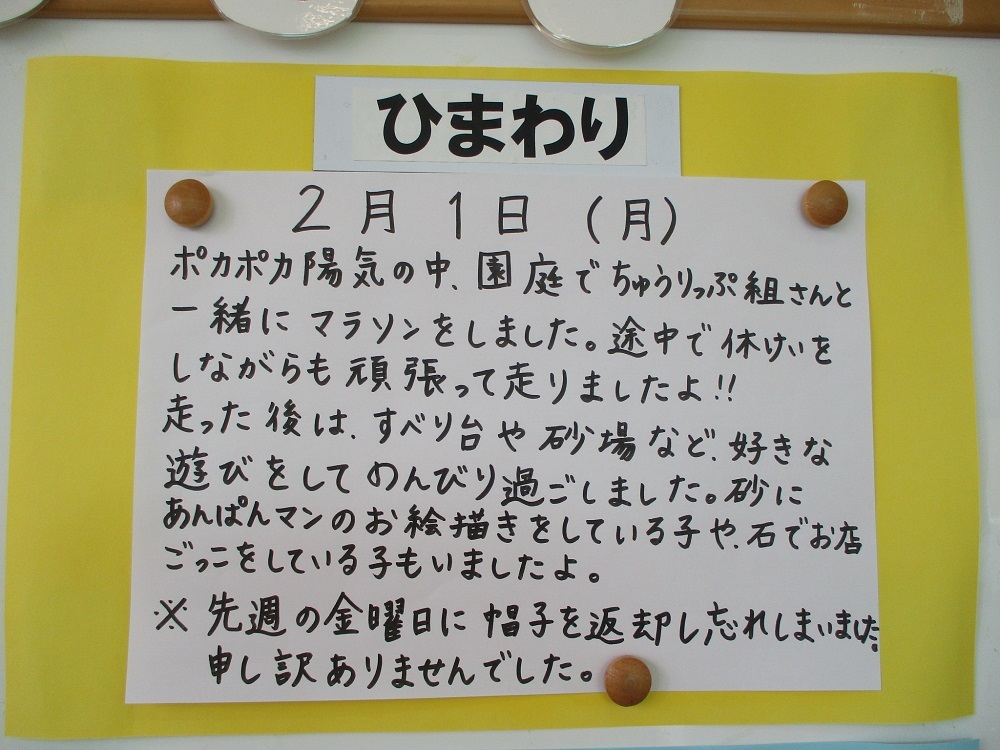 ひまわり
2月1日(月)
ポカポカ陽気の中、園庭でちゅうりっぷ組さんと
一緒にマラソンをしました。途中で休けいを
しながらも頑張って走りましたよ!!
走った後は、すべり台や砂場など、好きな
遊びをしてのんびり過ごしました。砂に
あんぱんマンのお絵描きをしている子や、石でお店
ごっこをしている子もいましたよ。
※先週の金曜日に帽子を返却し忘れしまいました。
申し訳ありませんでした。